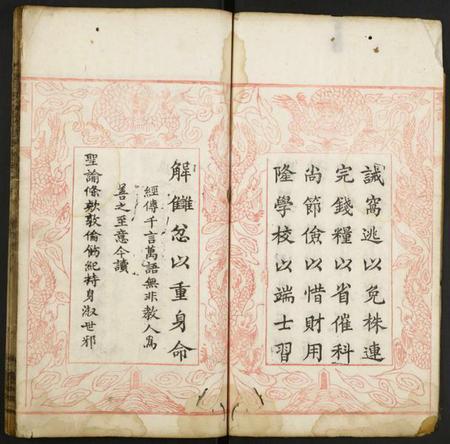 誡窩逃以免株連
完錢糧以省催科
尚節儉以惜財用
隆學校以端士習
解讎忿以重身命
經傳千言萬語無非教人為
善之至意今讀
聖諭條款敦倫飭紀持身淑世邪